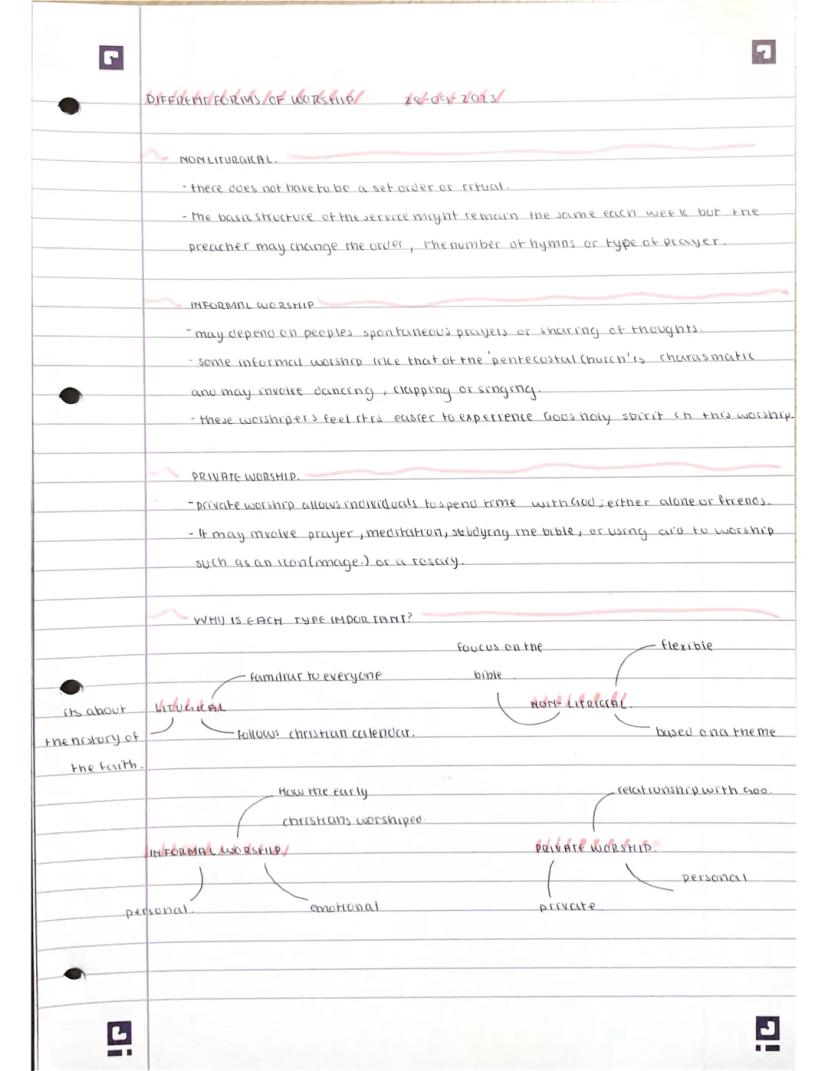 DIFFERENT FORMS OF WORSHIP
NON LITURGICAL.
- there does not have to be a set order or ritual.
- the basic structure of the service might remain the same each week but the
preacher may change the order, the number of hymns or type of prayer.
INFORMAL WORSHIP
- may depend on peoples spontaneous prayers or sharing of thoughts.
- some informal worship like that of the 'pentecostal church' is charasmatic
and may involve dancing, clapping or singing.
- these worshipers feel it is easier to experience Gods holy spirit in this worship.
PRIVATE WORSHIP.
- private worship allows individuals to spend time with God; either alone or friends.
- It may involve prayer, meditation, studying the bible, or using aid to worship
such as an icon(image.) or a rosary.
WHY IS EACH TYPE IMPORTANT?
familiar to everyone
LITUGICAL
follows christian calendar.
its about
the history of
the faith.
foucus on the
bible
flexible
NON-LITRIGCAL.
based on a theme
How the early
christians worshiped
INFORMAL WORSHIP
personal.
emotional
relationship with God.
PRIVATE WORSHIP.
private
personal